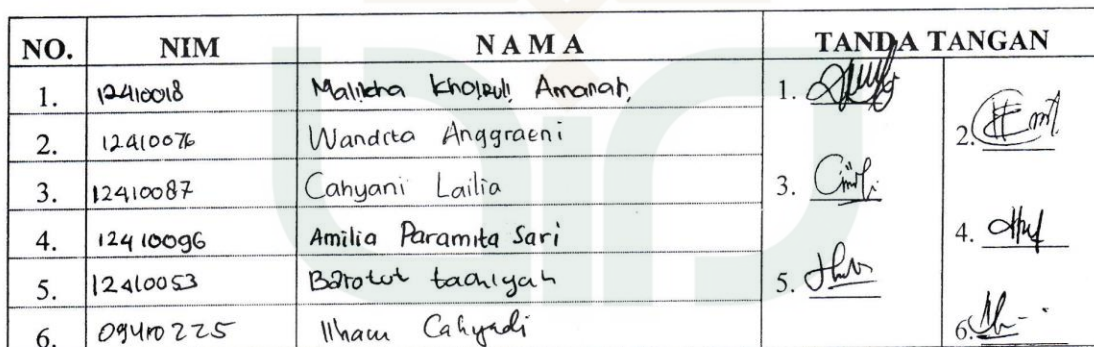 NO. NIM NAMA TANDA TANGAN
1. 12410018 Malikha Kholquli Amanah, 1.
2. 12410076 Wandita Anggraeni 2.
3. 12410087 Cahyani Lailia 3.
4. 12410096 Amilia Paramita Sari 4.
5. 12410053 Barotut tachiyah 5.
6. 09410225 Ilham Cahyadi 6.